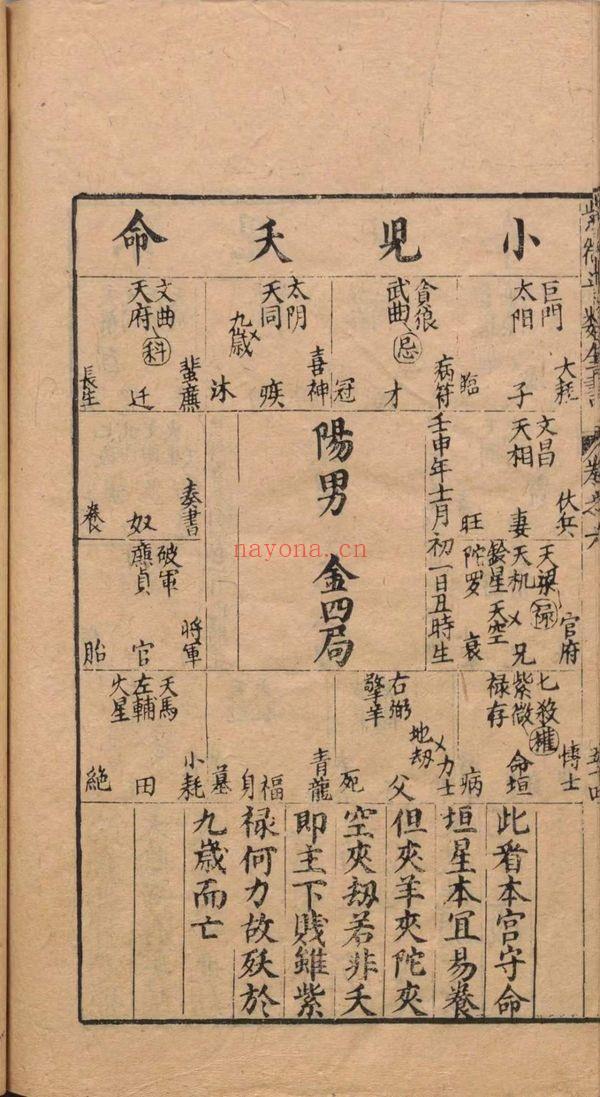 小兒夭命
巨門
太阳
子
大耗
臨
貪狼
武曲忌
才
病符
冠
太阴
天同
九歲
疾
喜神
沐
文曲
天府科
迁
蜚廉
長生
文昌
天相
妻
伏兵
旺
天梁禄
天机
鈴星天空
陀罗
兄
官府
衰
七殺
紫微權
禄存
命垣
博士
病
右弼
擎羊
地刼
父
力士
死
福
身
青龍
墓
天馬
左輔
火星
田
小耗
絶
破軍
廉貞
官
將軍
胎
奴
奏書
養
壬申年十二月初一日丑時生
陽男
金四局
此看本宮守命
垣星本宜易養
但夾羊夾陀夾
空夾刼若非夭
即主下賎雖紫
禄何力故殀於
九歲而亡
nayona.cn